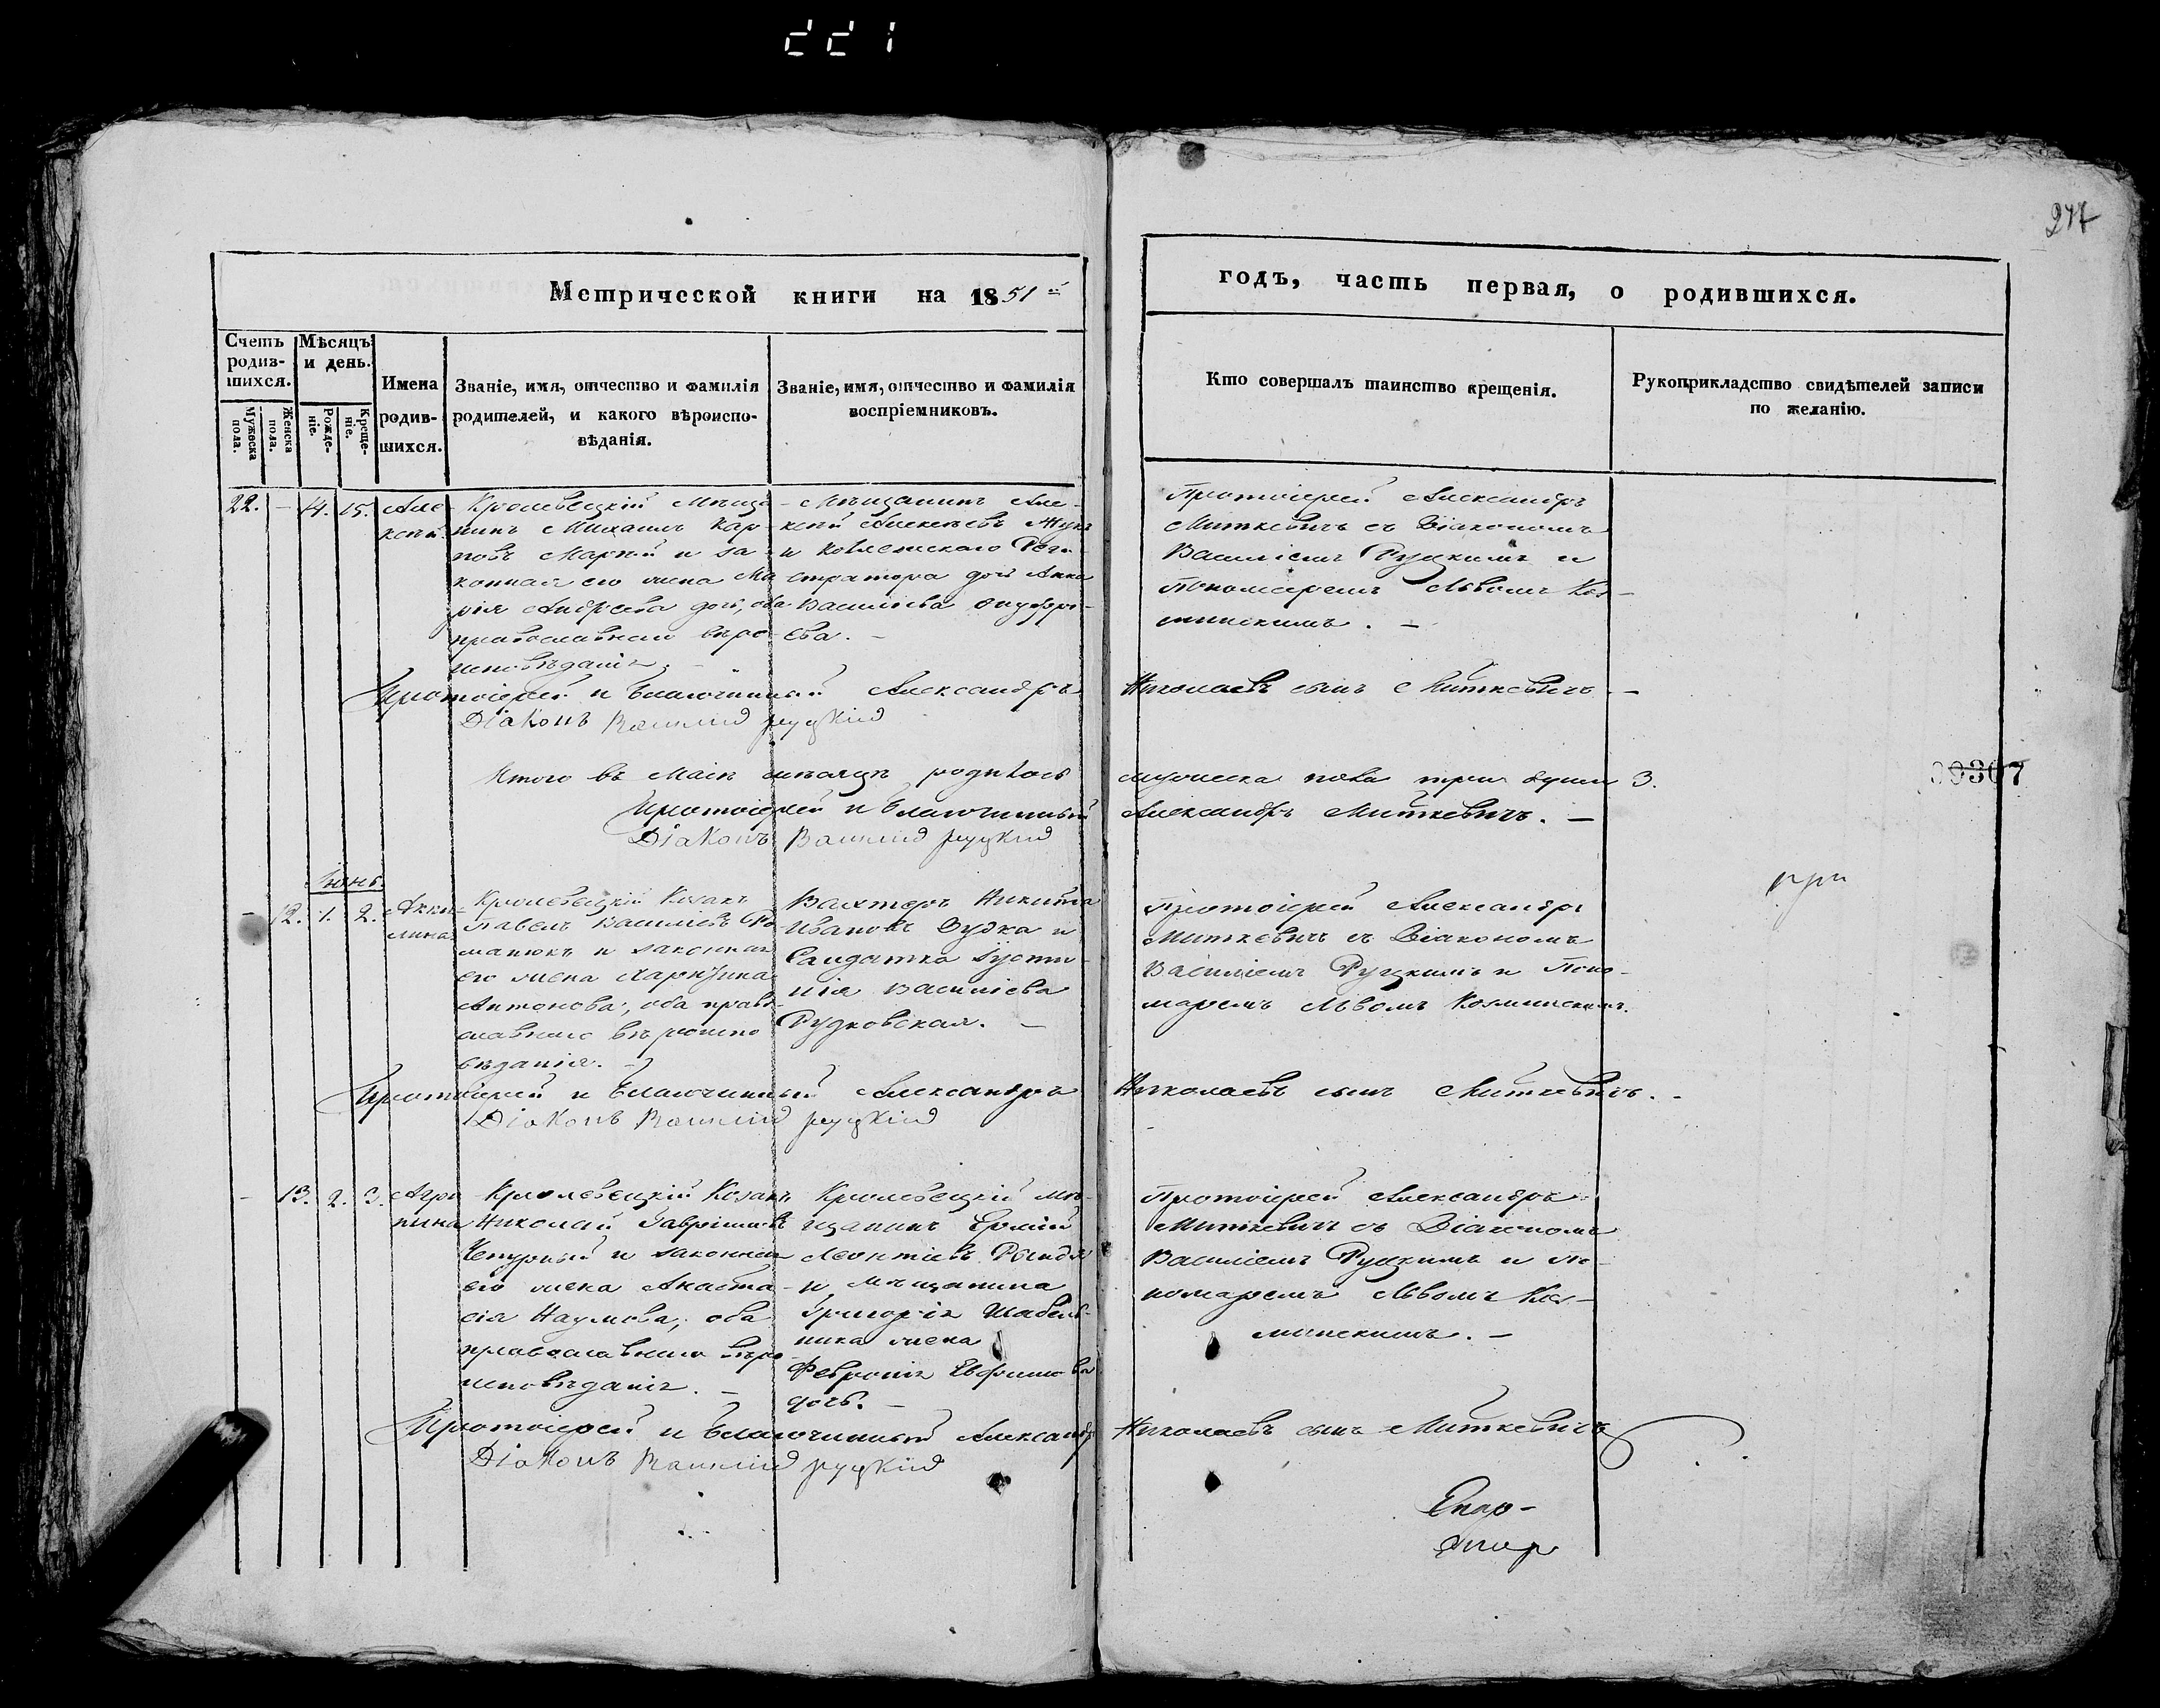 221
277
Метрической книги на 1851й
годъ, часть первая, о родившихся.
Счетъ родив-шихся.
Мужеска пола.
Женска пола.
Мѣсяцъ и день.
Рожде-ніе.
Креще-ніе.
Имена родив-шихся.
Званіе, имя, отчество и фамилія
родителей, и какого вѣроиспо-
вѣданія.
Званіе, имя, отчество и фамилія
воспріемниковъ.
Кто совершалъ таинство крещенія.
Рукоприкладство свидѣтелей записи
по желанію.
22. - 14. 15.
Але-
ксѣй.
Кролевецкій Мѣща-
нинъ Михаилъ Кар-
повъ и за-
конная его жена Ма-
рія Андреева дочь, оба
православнаго вѣро-
исповѣданія. -
Мѣщанинъ Але-
ксѣй Алексѣевъ
и Колежскаго Реги-
стратора дочь Анна
Василіева Онуфрі-
ева. -
Протоіерей Александръ
Миткевичъ съ Діакономъ
Василіемъ Руцкимъ и
Пономаремъ Львомъ Коз-
минскимъ. -
Протоіерей и Благочинный Александръ Николаевъ сынъ Миткевичъ. -
Діаконъ Василій Руцкій
Итого въ Маіѣ мѣсяцѣ родилось мужеска пола три души 3.
Протоіерей и Благочинный Александръ Миткевичъ. -
Діаконъ Василій Руцкій
00307
Іюнь.
- 12. 1. 2.
Акки-
лина
Кролевецкій Козакъ
Павелъ Василіевъ Ро-
манюкъ и законная
его жена Харитина
Антонова; оба право-
славнаго вѣроиспо-
вѣданія. -
Вахтеръ Никита
Ивановъ Зудка и
Салдатка Іусти-
нія Василіева
Рудковская. -
Протоіерей Александръ
Миткевичъ съ Діакономъ
Василіемъ Руцкимъ и Поно-
маремъ Львомъ Козминскимъ.
при
Протоіерей и Благочинный Александръ Николаевъ сынъ Миткевичъ. -
Діаконъ Василій Руцкій
- 13. 2. 3.
Агри-
пина
Кролевецкій Козакъ
Николай Гавріиловъ
Чепурный и законная
его жена Анаста-
сія Наумова, оба
православнаго вѣро-
исповѣданія. -
Кролевецкій мѣ-
щанинъ Ермій
Леонтіевъ Рындя
и мѣщанина
Григорія Шабель-
ника жена
Февронія Евфимова
дочь. -
Протоіерей Александръ
Миткевичъ съ Діакономъ
Василіемъ Руцкимъ и По-
номаремъ Львомъ Коз-
минскимъ. -
Протоіерей и Благочинный Александръ Николаевъ сынъ Миткевичъ
Діаконъ Василій Руцкій